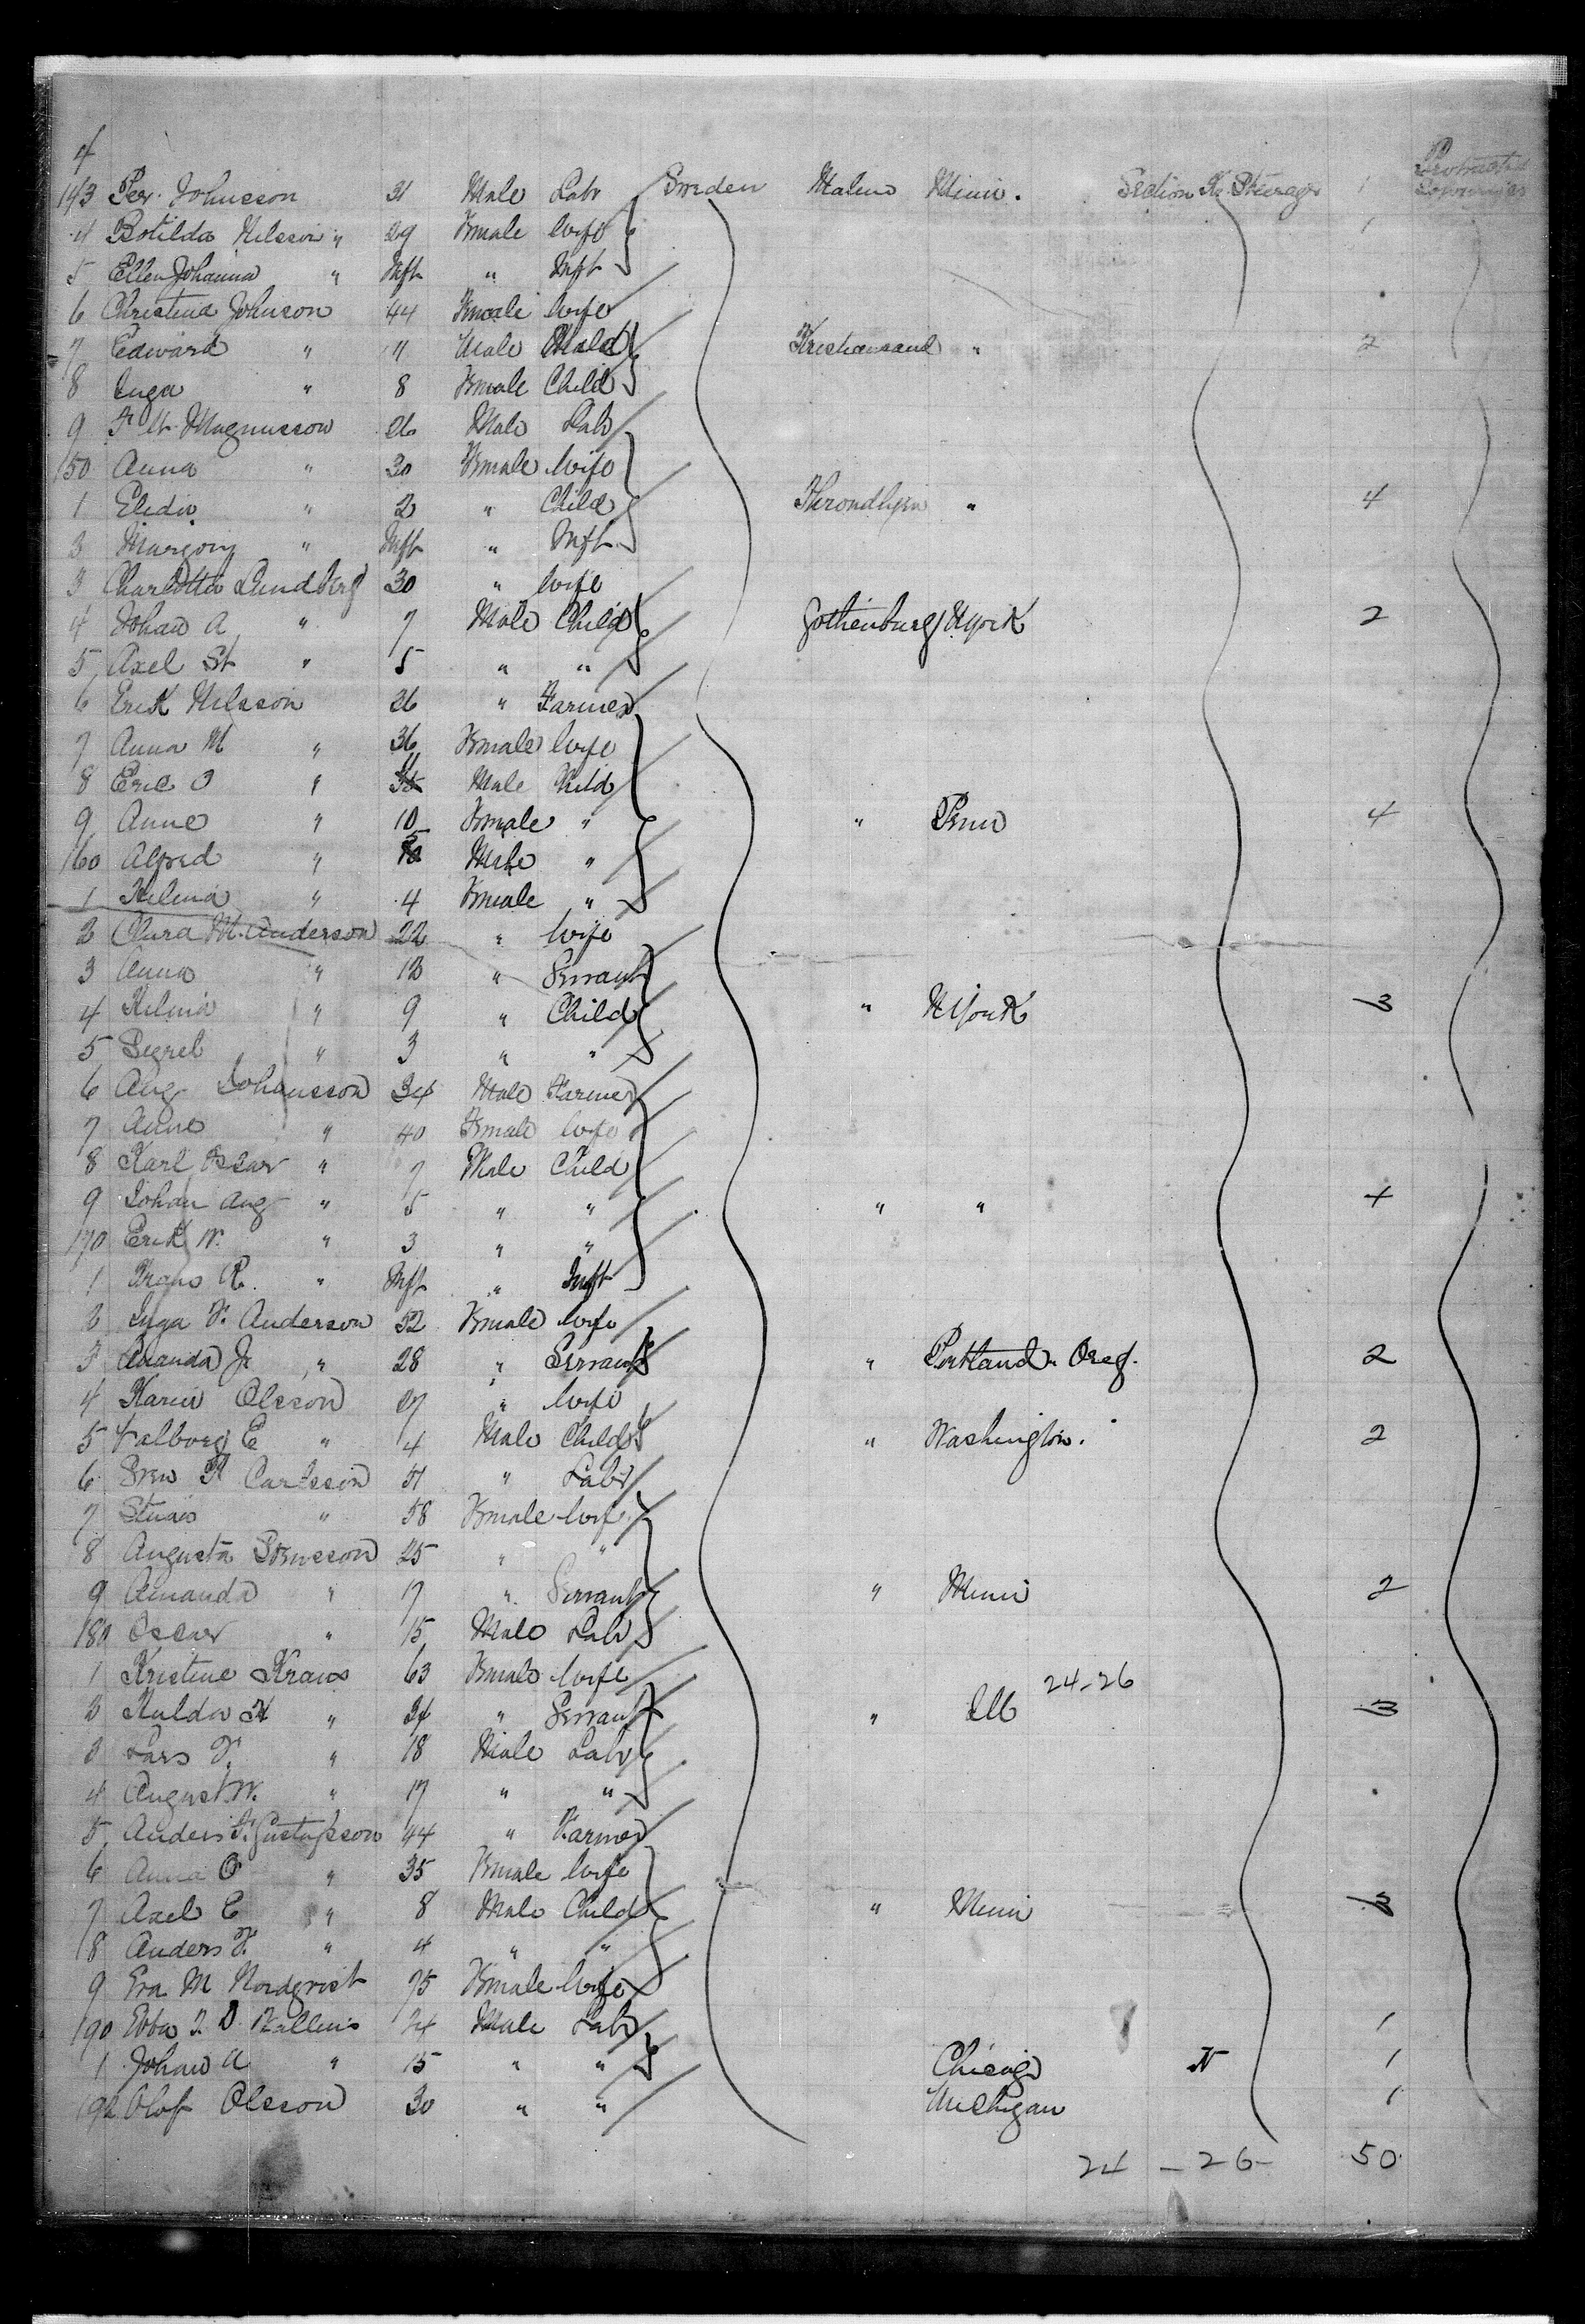 4
143 Per Johnsson 31 Male Labr Sweden Malmo Minn. Section K. Steerage 1 Protracted Sojourn
4 Botilda Nilsson " 29 Female Wife 1
5 Ellen Johanna " Inft " Inft
6 Christina Johnson 44 Female Wife
7 Edward " 11 Male Child Kristiansand " 2
8 Inga " 8 Female Child
9 Magnusson 26 Male Labr
150 Anna " 30 Female Wife
1 Elida " 2 " Child Throndhjem " 4
2 Margory " Inft " Inft
3 Charlotta Lundberg 30 " Wife
4 Johan A " 7 Male Child Gothenburg NYork 2
5 Axel " 5 " "
6 Erik Nilsson 36 " Farmer
7 Anna M " 36 Female Wife
8 Eric O " 11 Male Child
9 Anne " 10 Female " " Penn 4
160 Alfred " 5 Male "
1 Helena " 4 Female "
2 Clara M. Anderson 22 " Wife
3 Anna " 12 " Servant
4 Helena " 9 " Child " NYork 3
5 Segrel " 3 " "
6 Aug Johansson 34 Male Farmer
7 Anne " 40 Female Wife
8 Karl Oscar " 7 Male Child
9 Johan Aug " 5 " " " " 4
170 Erik W. " 3 " "
1 Frans R. " Inft " Inft
2 Inga F. Anderson 52 Female Wife
3 Amanda J " 28 " Servant " Portland Oreg. 2
4 Karin Olsson 27 " Wife
5 Valborg E " 4 Male Child " Washington. 2
6 Sven Carlsson 51 " Labr
7 " 58 Female Wife
8 Augusta Svensson 25 " "
9 Amanda " 17 " Servant " Minn 2
180 Oscar " 15 Male Labr
1 Kristine Kraus 63 Female Wife 24-26
2 Hulda H " 24 " Servant " Ill 3
3 Lars F. " 18 Male Labr
4 August W. " 17 " "
5 Anders F. Gustafsson 44 " Farmer
6 Anna O " 35 Female Wife
7 Axel E " 8 Male Child " Minn 3
8 Anders F. " 4 " "
9 Eva M Nordqvist 75 Female Wife
190 Ebba 24 Male Labr 1
1 Johan A " 15 " " Chicago N 1
192 Olof Olsson 30 " " Michigan 1
24 - 26 - 50